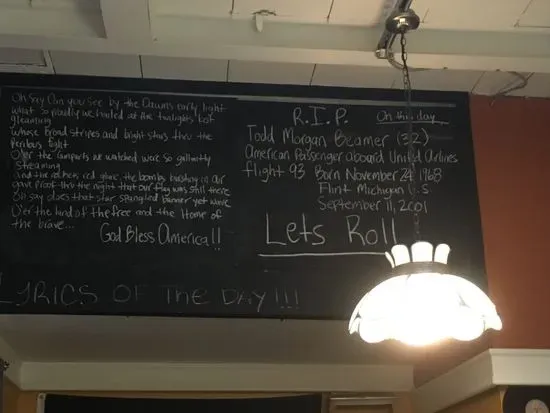 Oh Say Can you see by the Dawns early light
what so proudly we hailed at the twilights last
gleaming
Whose Broad stripes and bright stars thru the
Perilous fight
O'er the ramparts we watched were so gallantly
streaming
And the rockets red glare the bombs bursting in air
gave proof thru the night that our flag was still there
Oh say does that star spangled banner yet wave
O'er the land of the free and the Home of
the brave...
God Bless America!!
LYRICS OF THE DAY!!!
R.I.P. On this day
Todd Morgan Beamer (32)
American Passenger aboard United Airlines
flight 93 Born November 24 1968
Flint Michigan U.S
September 11, 2001
Lets Roll